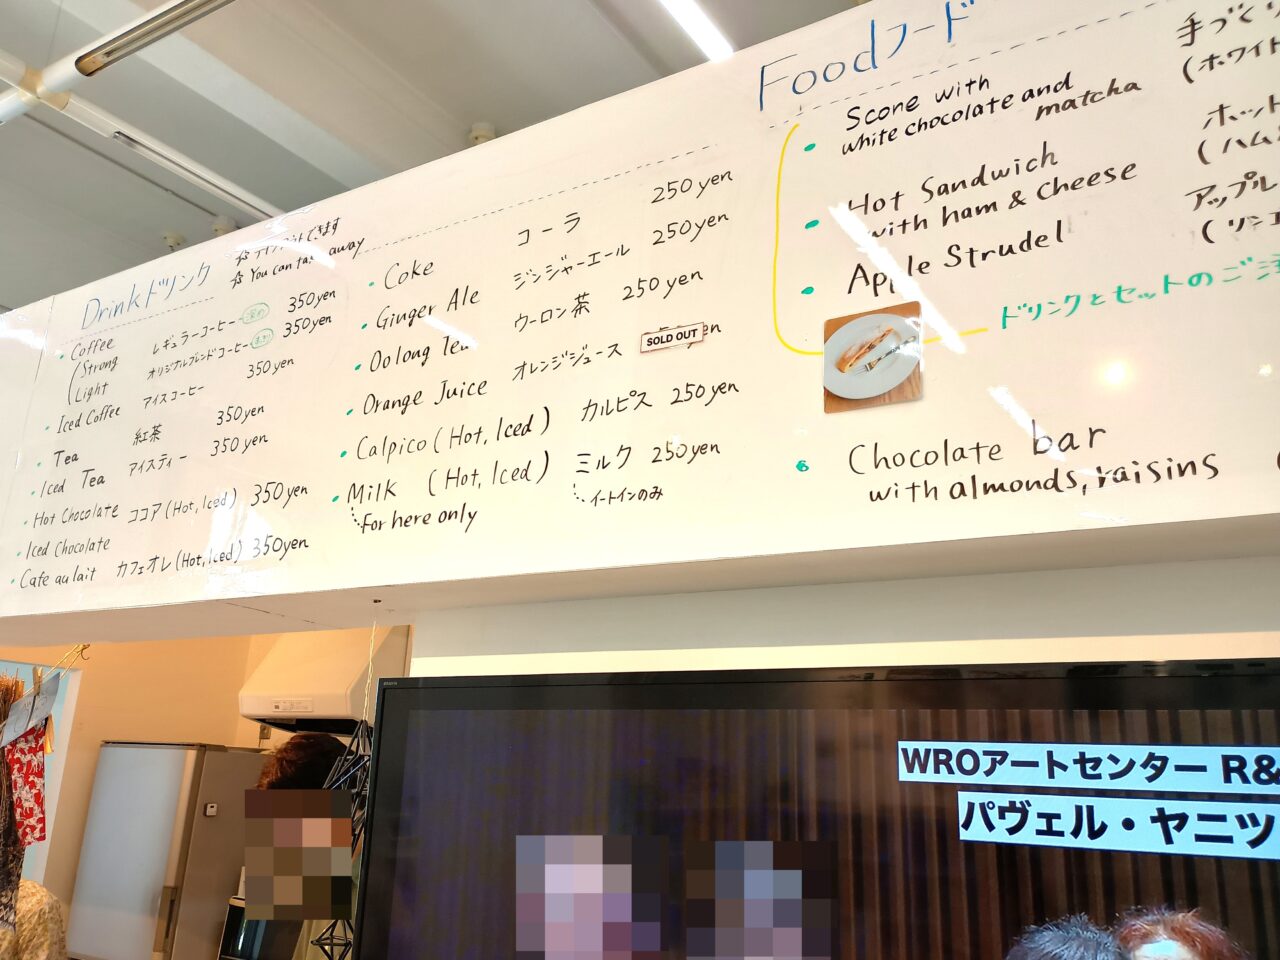 Drink ドリンク
☆ テイクアウトできます
☆ You can take away
Coffee
Strong レギュラーコーヒー 350yen
Light オリジナルブレンドコーヒー 350yen
Iced Coffee アイスコーヒー 350yen
Tea 紅茶 350yen
Iced Tea アイスティー 350yen
Hot Chocolate ココア (Hot, Iced) 350yen
Iced Chocolate
Cafe au lait カフェオレ (Hot, Iced) 350yen
Coke コーラ 250yen
Ginger Ale ジンジャーエール 250yen
Oolong Tea ウーロン茶 250yen
Orange Juice オレンジジュース SOLD OUT
Calpico (Hot, Iced) カルピス 250yen
Milk (Hot, Iced) ミルク 250yen
For here only イートインのみ
Food フード
Scone with 手づくり
white chocolate and matcha (ホワイト
Hot Sandwich ホット
with ham & cheese (ハム
Apple Strudel アップル
ドリンクとセットのご注
Chocolate bar
with almonds, raisins
WROアートセンター R&
パヴェル・ヤニツ